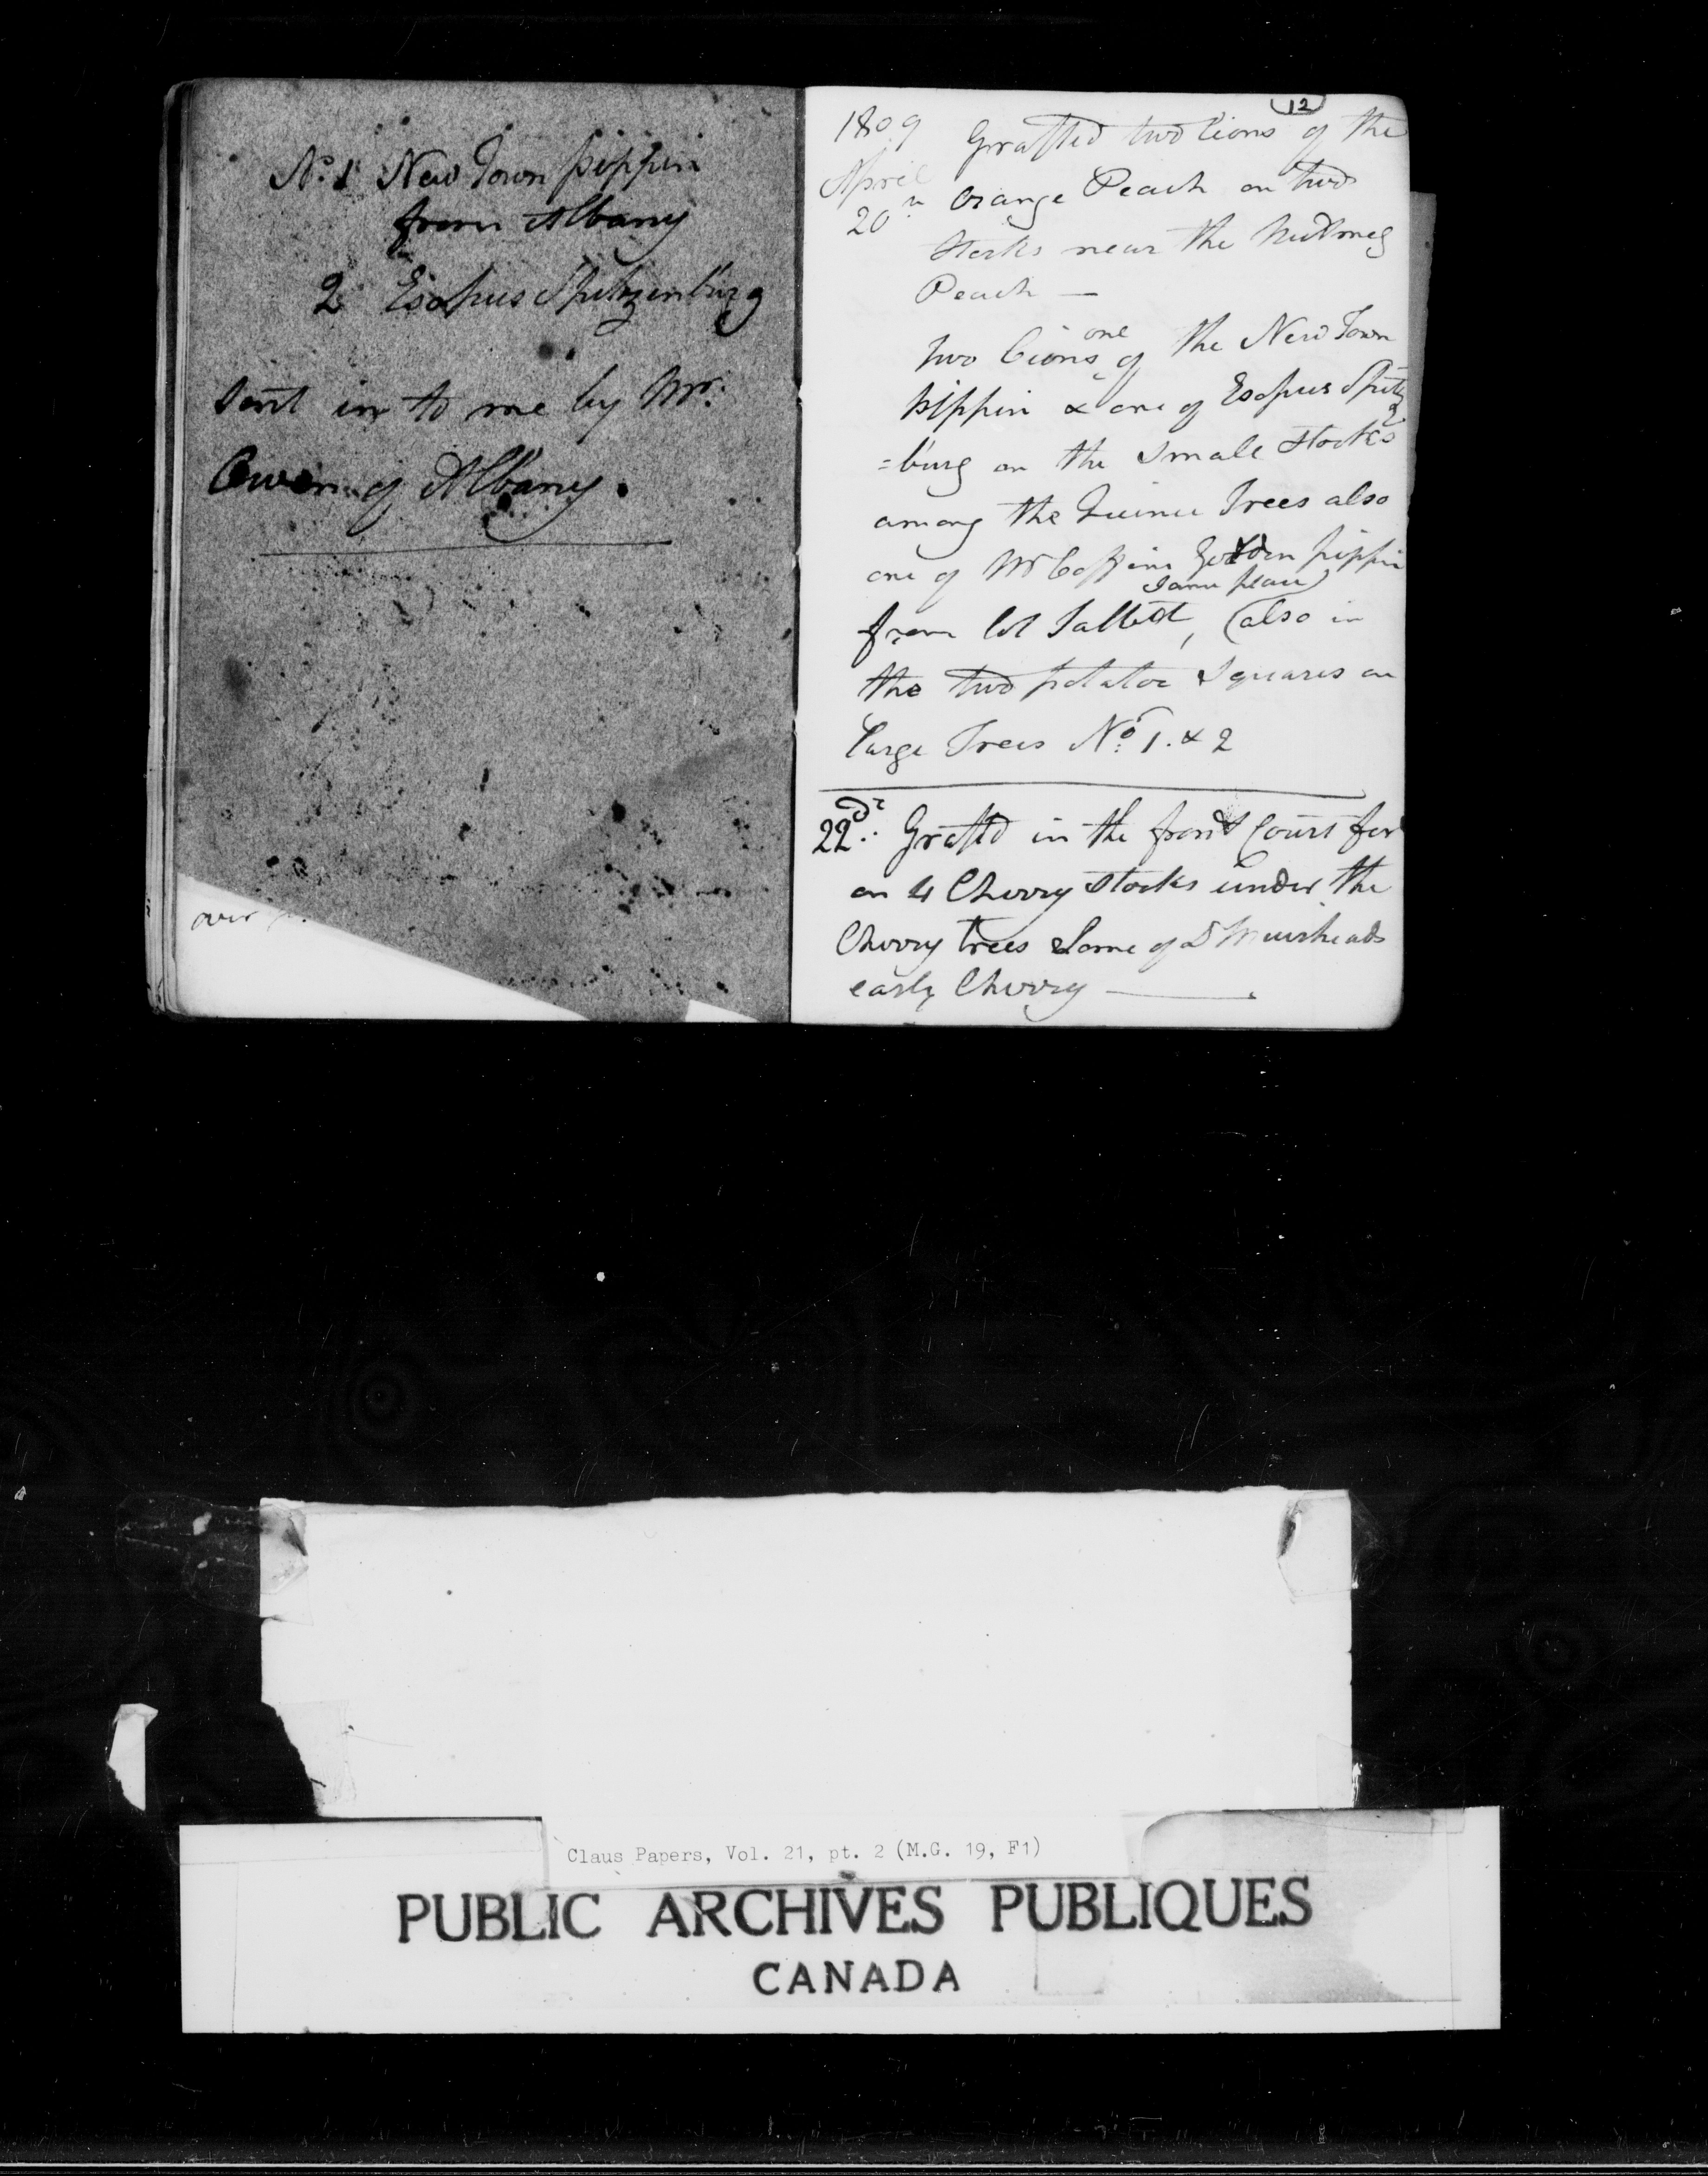 No. 1 New Town pippin
from Albany
2 Esopus Spitzenburg
sent in to me by Mr.
Owen of Albany.
over
12
1809 Grafted two Cions of the
April
20th orange Peach on two
Stocks near the Nutmeg
Peach —
one
two Cions ‸ of the New Town
pippin & one of Esopus Spitz
=burg on the Small Stocks
among the Quince Trees also
one of Mr Coffins Golden pippin
same place
from Col Talbot, (also in
the two potatoe Squares on
large Trees No. 1. & 2
22d: Grafted in the front Court
on 4 Cherry Stocks under the
Cherry trees Some of D Muirheads
early Cherry —
Claus Papers, Vol. 21, pt. 2 (M.G. 19, F1)
PUBLIC ARCHIVES PUBLIQUES
CANADA